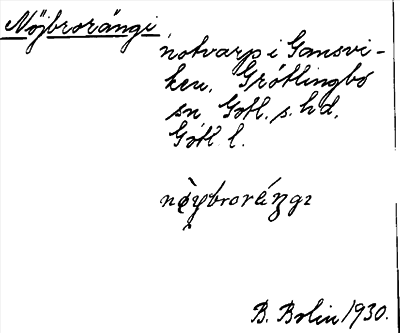 Nöjbrorängi
notvarp i Gansvi-
ken, Grötlingbo
sn Gotl. s. hd,
Gotl. l.
B. Bolin 1930.